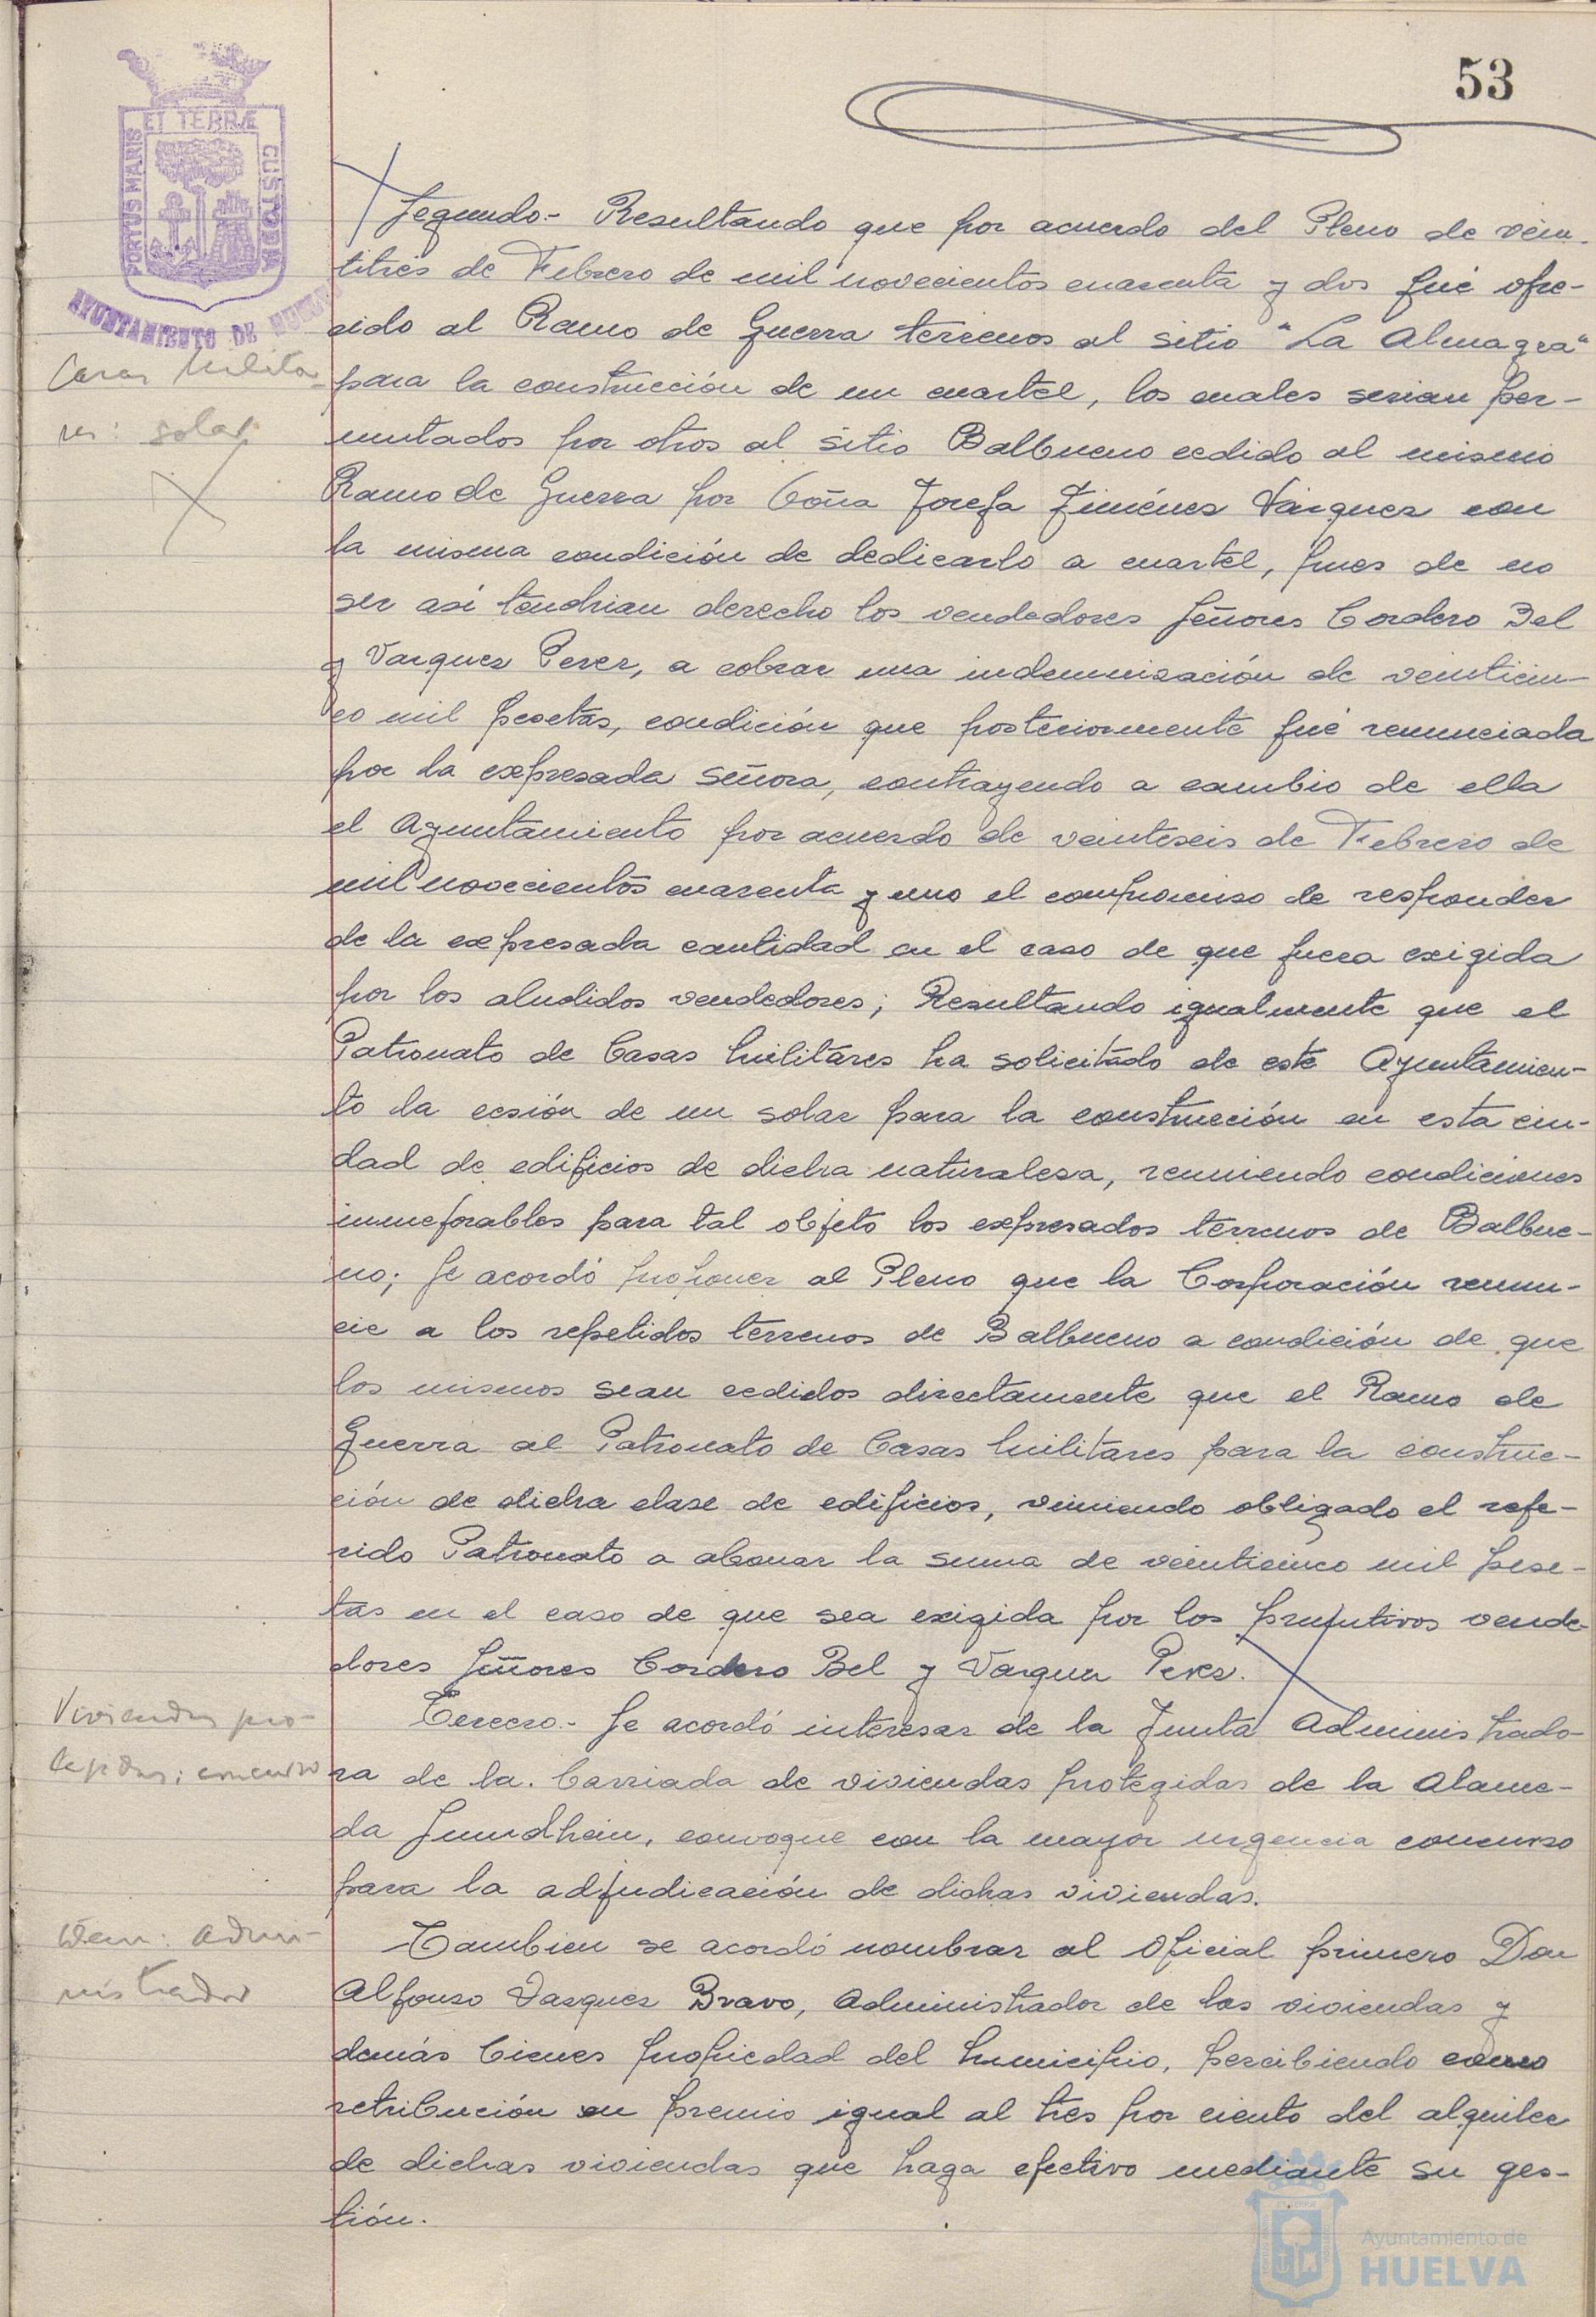 53
PORTUS MARIS ET TERRÆ CUSTODIA
AYUNTAMIENTO DE HUELVA
Segundo.- Resultando que por acuerdo del Pleno de vein-
titrés de Febrero de mil novecientos cuarenta y dos fué ofre-
cido al Ramo de Guerra terrenos al sitio "La Almagra"
Casas Milita-
res: solar
para la construcción de un cuartel, los cuales serian per-
mutados por otros al sitio Balbueno cedido al mismo
Ramo de Guerra por Doña Josefa Jiménez Vázquez con
la misma condición de dedicarlo a cuartel, pues de no
ser asi tendrian derecho los vendedores Señores Cordero Bel
y Vazquez Perez, a cobrar una indemnización de veinticin-
co mil pesetas, condición que posteriormente fué renunciada
por la expresada señora, contrayendo a cambio de ella
el Ayuntamiento por acuerdo de veinteseis de Febrero de
mil novecientos cuarenta y uno el compromiso de responder
de la expresada cantidad en el caso de que fuera exigida
por los aludidos vendedores; Resultando igualmente que el
Patronato de Casas Militares ha solicitado de este Ayuntamien-
to la cesión de un solar para la construcción en esta ciu-
dad de edificios de dicha naturaleza, reuniendo condiciones
inmejorables para tal objeto los expresados terrenos de Balbue-
no; Se acordó proponer al Pleno que la Corporación renun-
cie a los repetidos terrenos de Balbueno a condición de que
los mismos sean cedidos directamente que el Ramo de
Guerra al Patronato de Casas Militares para la construc-
ción de dicha clase de edificios, viniendo obligado el refe-
rido Patronato a abonar la suma de veinticinco mil pese-
tas en el caso de que sea exigida por los primitivos vende-
dores Señores Cordero Bel y Vazquez Perez.
Viviendas pro-
tegidas: concurso
Tercero.- Se acordó interesar de la Junta Administrado-
ra de la Barriada de viviendas protegidas de la Alame-
da Sundhein, convoque con la mayor urgencia concurso
para la adjudicación de dichas viviendas.
Idem: Admi-
nistrador
Tambien se acordó nombrar al Oficial primero Don
Alfonso Vazquez Bravo, Administrador de las viviendas y
demás bienes propiedad del Municipio, percibiendo como
retribución un premio igual al tres por ciento del alquiler
de dichas viviendas que haga efectivo mediante su ges-
tión.
Ayuntamiento de
HUELVA